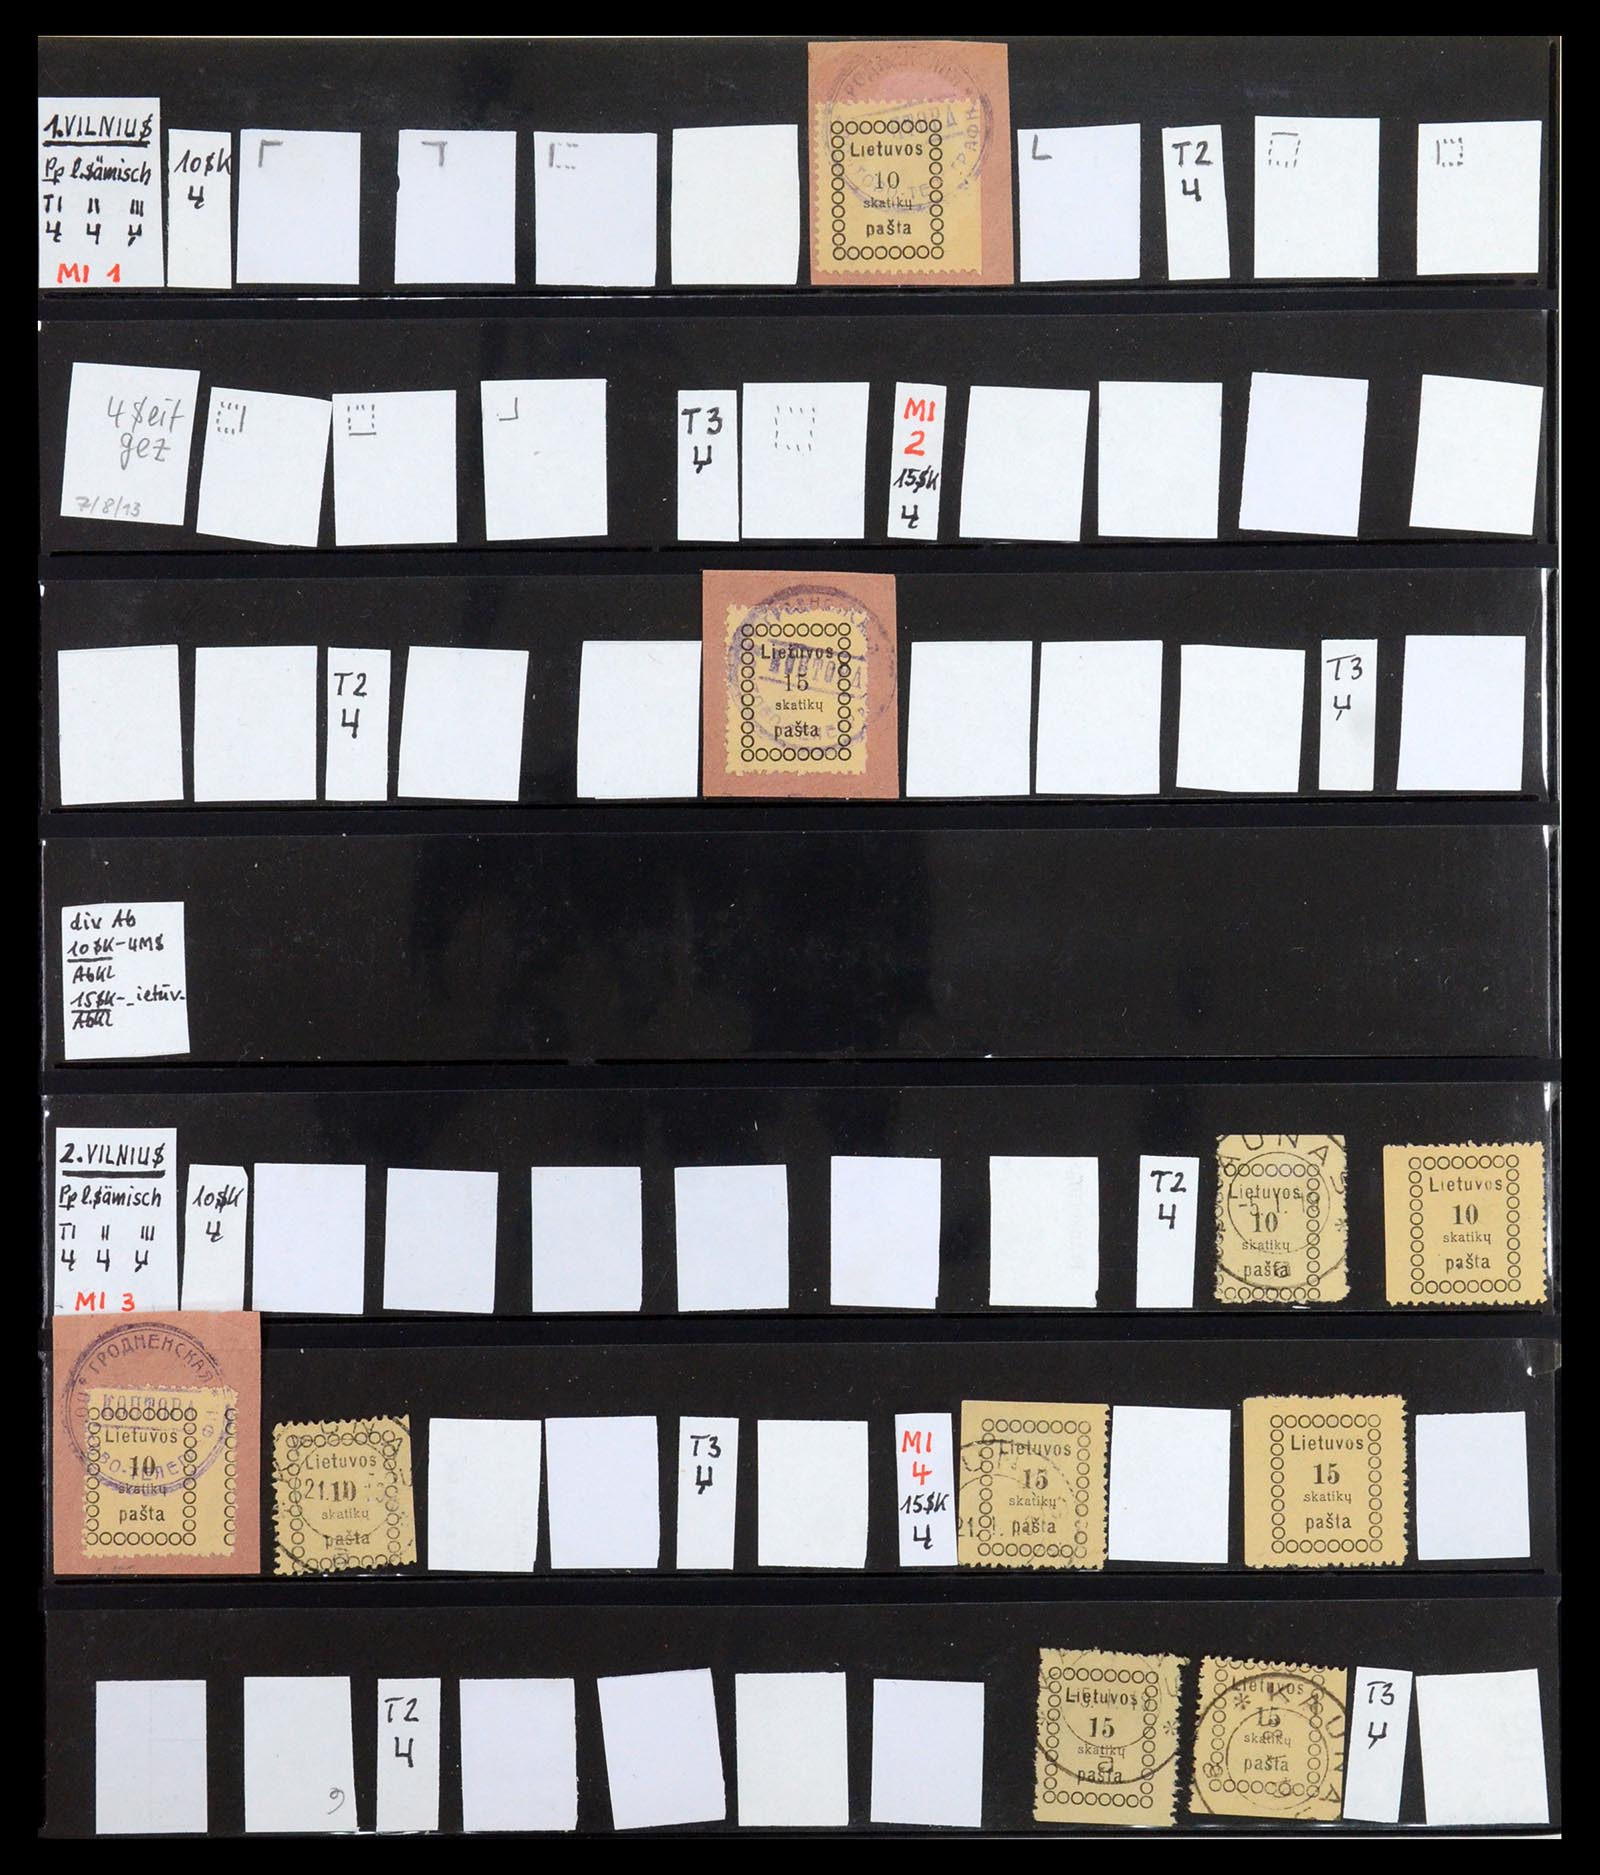 1.VILNIUS
Pp l.sämisch
TI II III
ų ų ų
MI 1
10SK
ų
Lietuvos
10
skatikų
pašta
T2
ų
4 Seit
gez
7/8/13
T3
ų
MI
2
15SK
ų
T2
ų
Lietuvos
15
skatikų
pašta
T3
ų
div Ab
10SK-uMS
AbKl
15SK-_ietuv.
AbKl
2.VILNIUS
Pp l.sämisch
TI II III
ų ų ų
MI 3
10SK
ų
T2
ų
KAUNAS
Lietuvos
10
skatikų
pašta
Lietuvos
10
skatikų
pašta
ГРОДНЕНСКАЯ
КОНТОРА
Lietuvos
10
skatikų
pašta
Lietuvos
21. 10
skatikų
pašta
T3
ų
MI
4
15SK
ų
Lietuvos
15
skatikų
21. pašta
Lietuvos
15
skatikų
pašta
T2
ų
Lietuvos
15
skatikų
pašta
KAUNA
Lietuvos
15
skatikų
pašta
T3
ų